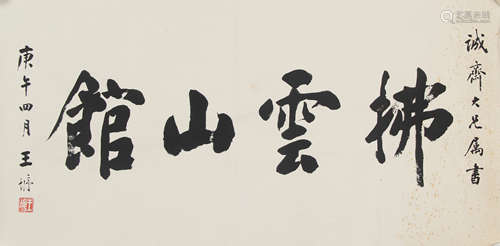 誠齊大兄属書
拂雲山館
庚午四月 王